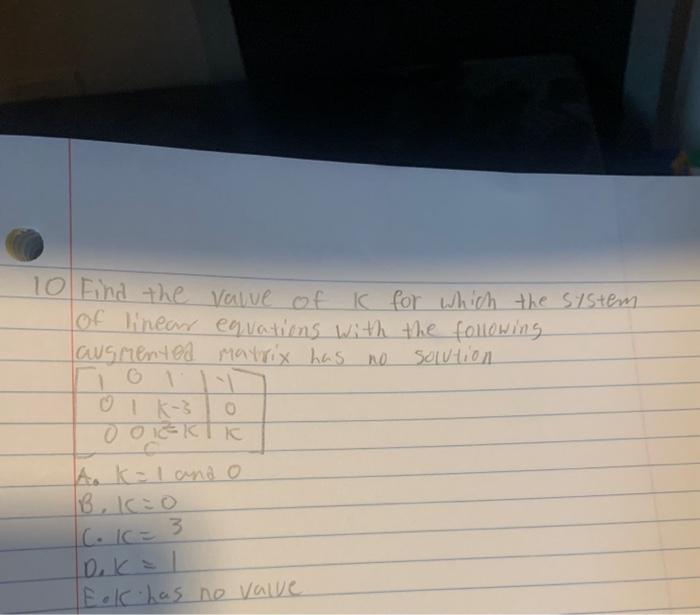 10 Find the value of K for which the system
of linear equations with the following
augmented matrix has no solution
1 0 1 | -1
0 1 K-3 | 0
0 0 K²-K | K
A. K = 1 and 0
B. K = 0
C. K = 3
D. K = 1
E. K has no value